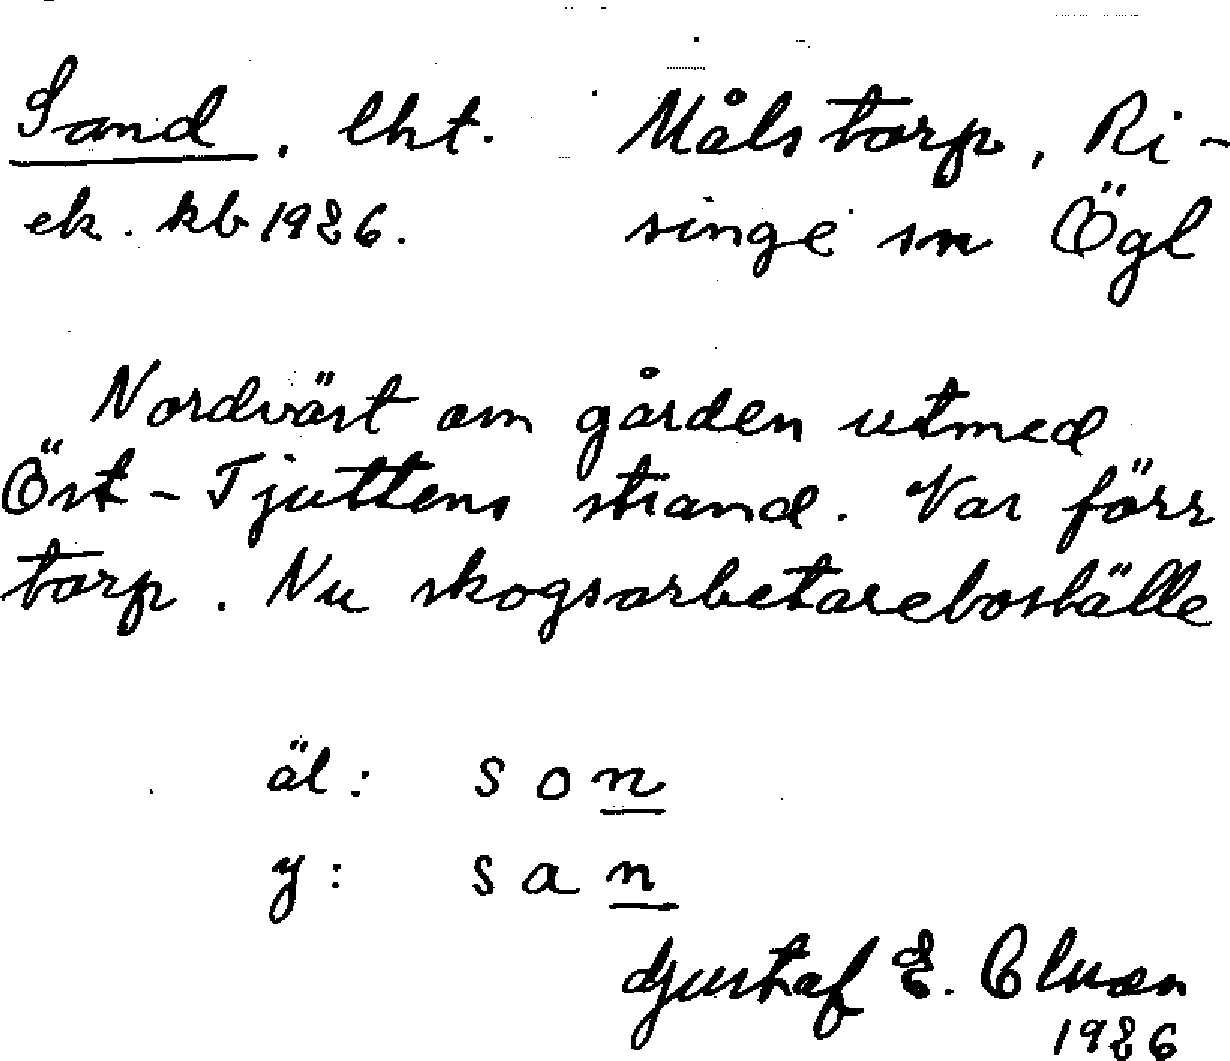 Sand, lht. Målstorp, Ri-
ek. kb 1926. singe sn Ögl
Nordväst om gården utmed
Öst-Tjuttens strand. Var förr
torp. Nu skogsarbetareboställe
äl: son
y: san
Gustaf E. Clvson
1926